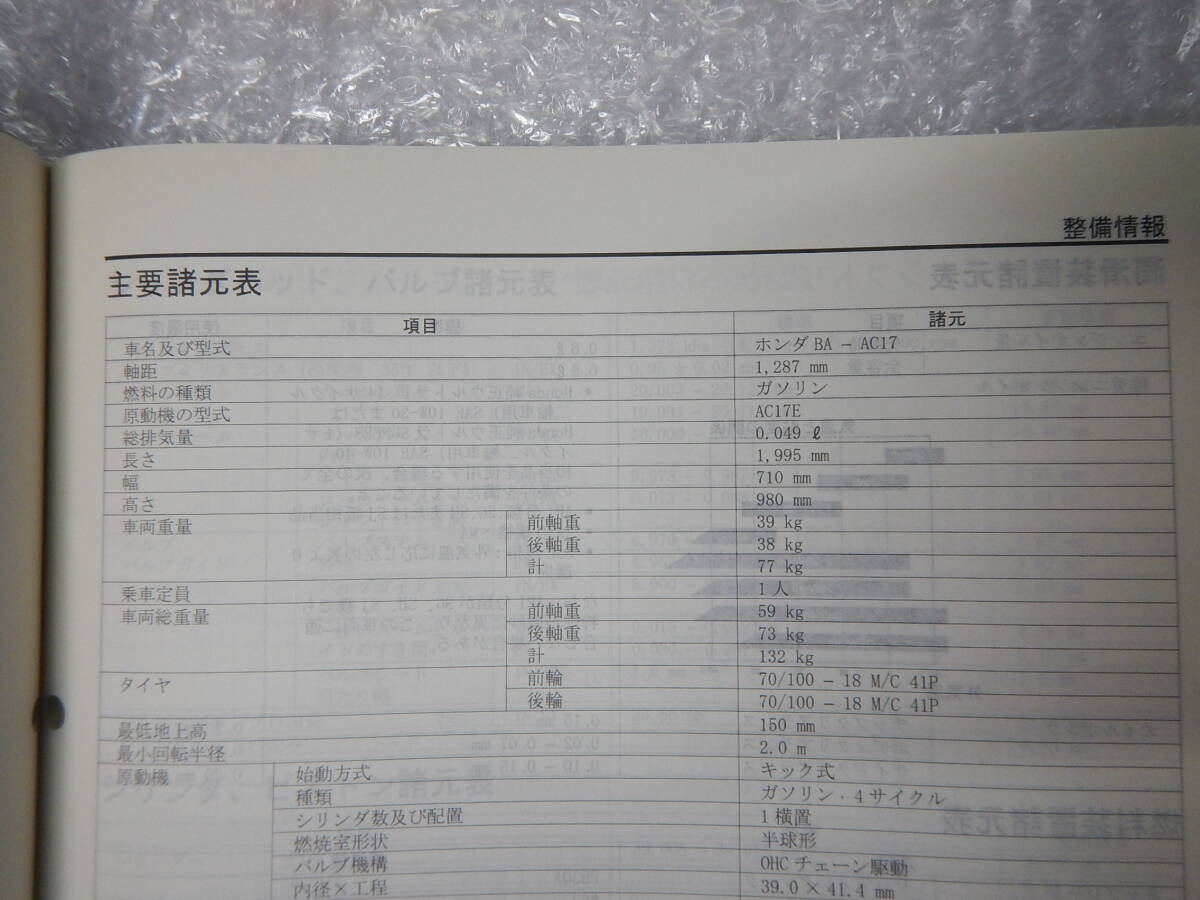 整備情報
主要諸元表
項目 諸元
車名及び型式 ホンダ BA － AC17
軸距 1,287 mm
燃料の種類 ガソリン
原動機の型式 AC17E
総排気量 0.049 ℓ
長さ 1,995 mm
幅 710 mm
高さ 980 mm
車両重量 前軸重 39 kg
後軸重 38 kg
計 77 kg
乗車定員 1人
車両総重量 前軸重 59 kg
後軸重 73 kg
計 132 kg
タイヤ 前輪 70/100 － 18 M/C 41P
後輪 70/100 － 18 M/C 41P
最低地上高 150 mm
最小回転半径 2.0 m
原動機 始動方式 キック式
種類 ガソリン・4サイクル
シリンダ数及び配置 1横置
燃焼室形状 半球形
バルブ機構 OHC チェーン駆動
内径×工程 39.0 × 41.4 mm